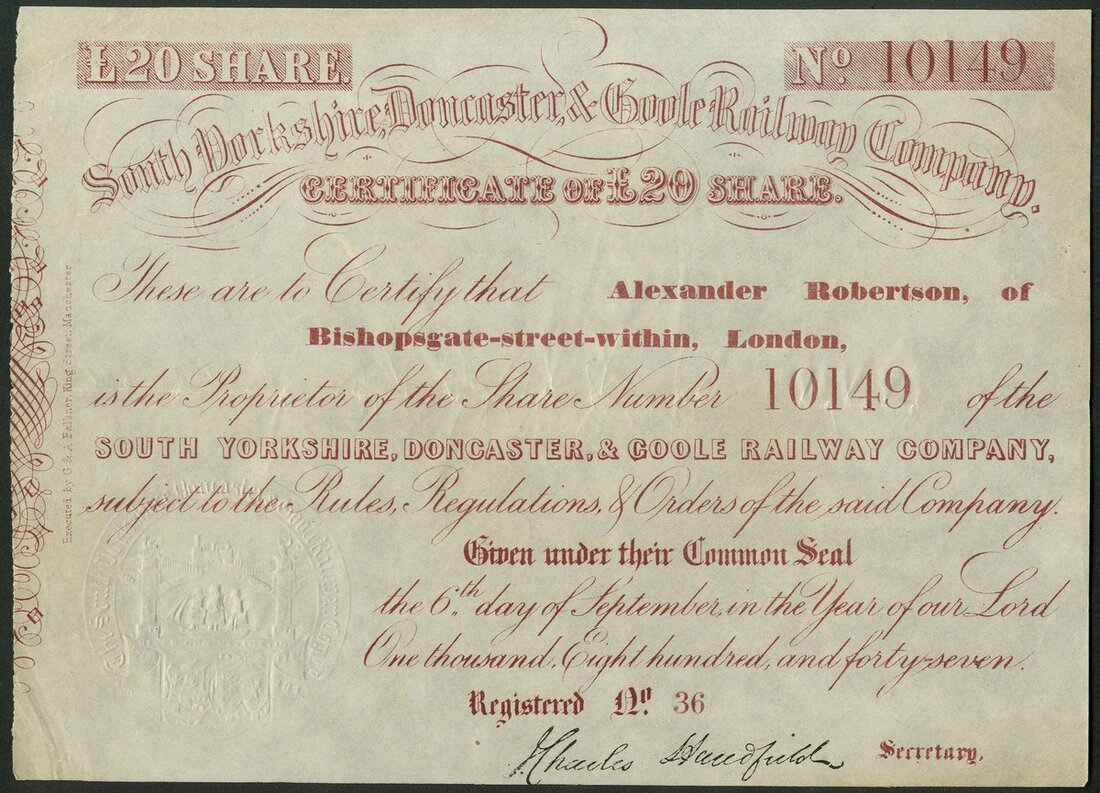 £20 SHARE.
No. 10149
South Yorkshire, Doncaster, & Goole Railway Company.
CERTIFICATE OF £20 SHARE.
These are to Certify that Alexander Robertson, of
Bishopsgate-street-within, London,
is the Proprietor of the Share Number 10149 of the
SOUTH YORKSHIRE, DONCASTER, & GOOLE RAILWAY COMPANY,
subject to the Rules, Regulations, & Orders of the said Company.
Given under their Common Seal
the 6th. day of September, in the Year of our Lord
One thousand, Eight hundred, and forty-seven.
Registered No. 36
Charles Handfield Secretary.
Executed by G & A Falkner, King Street, Manchester.